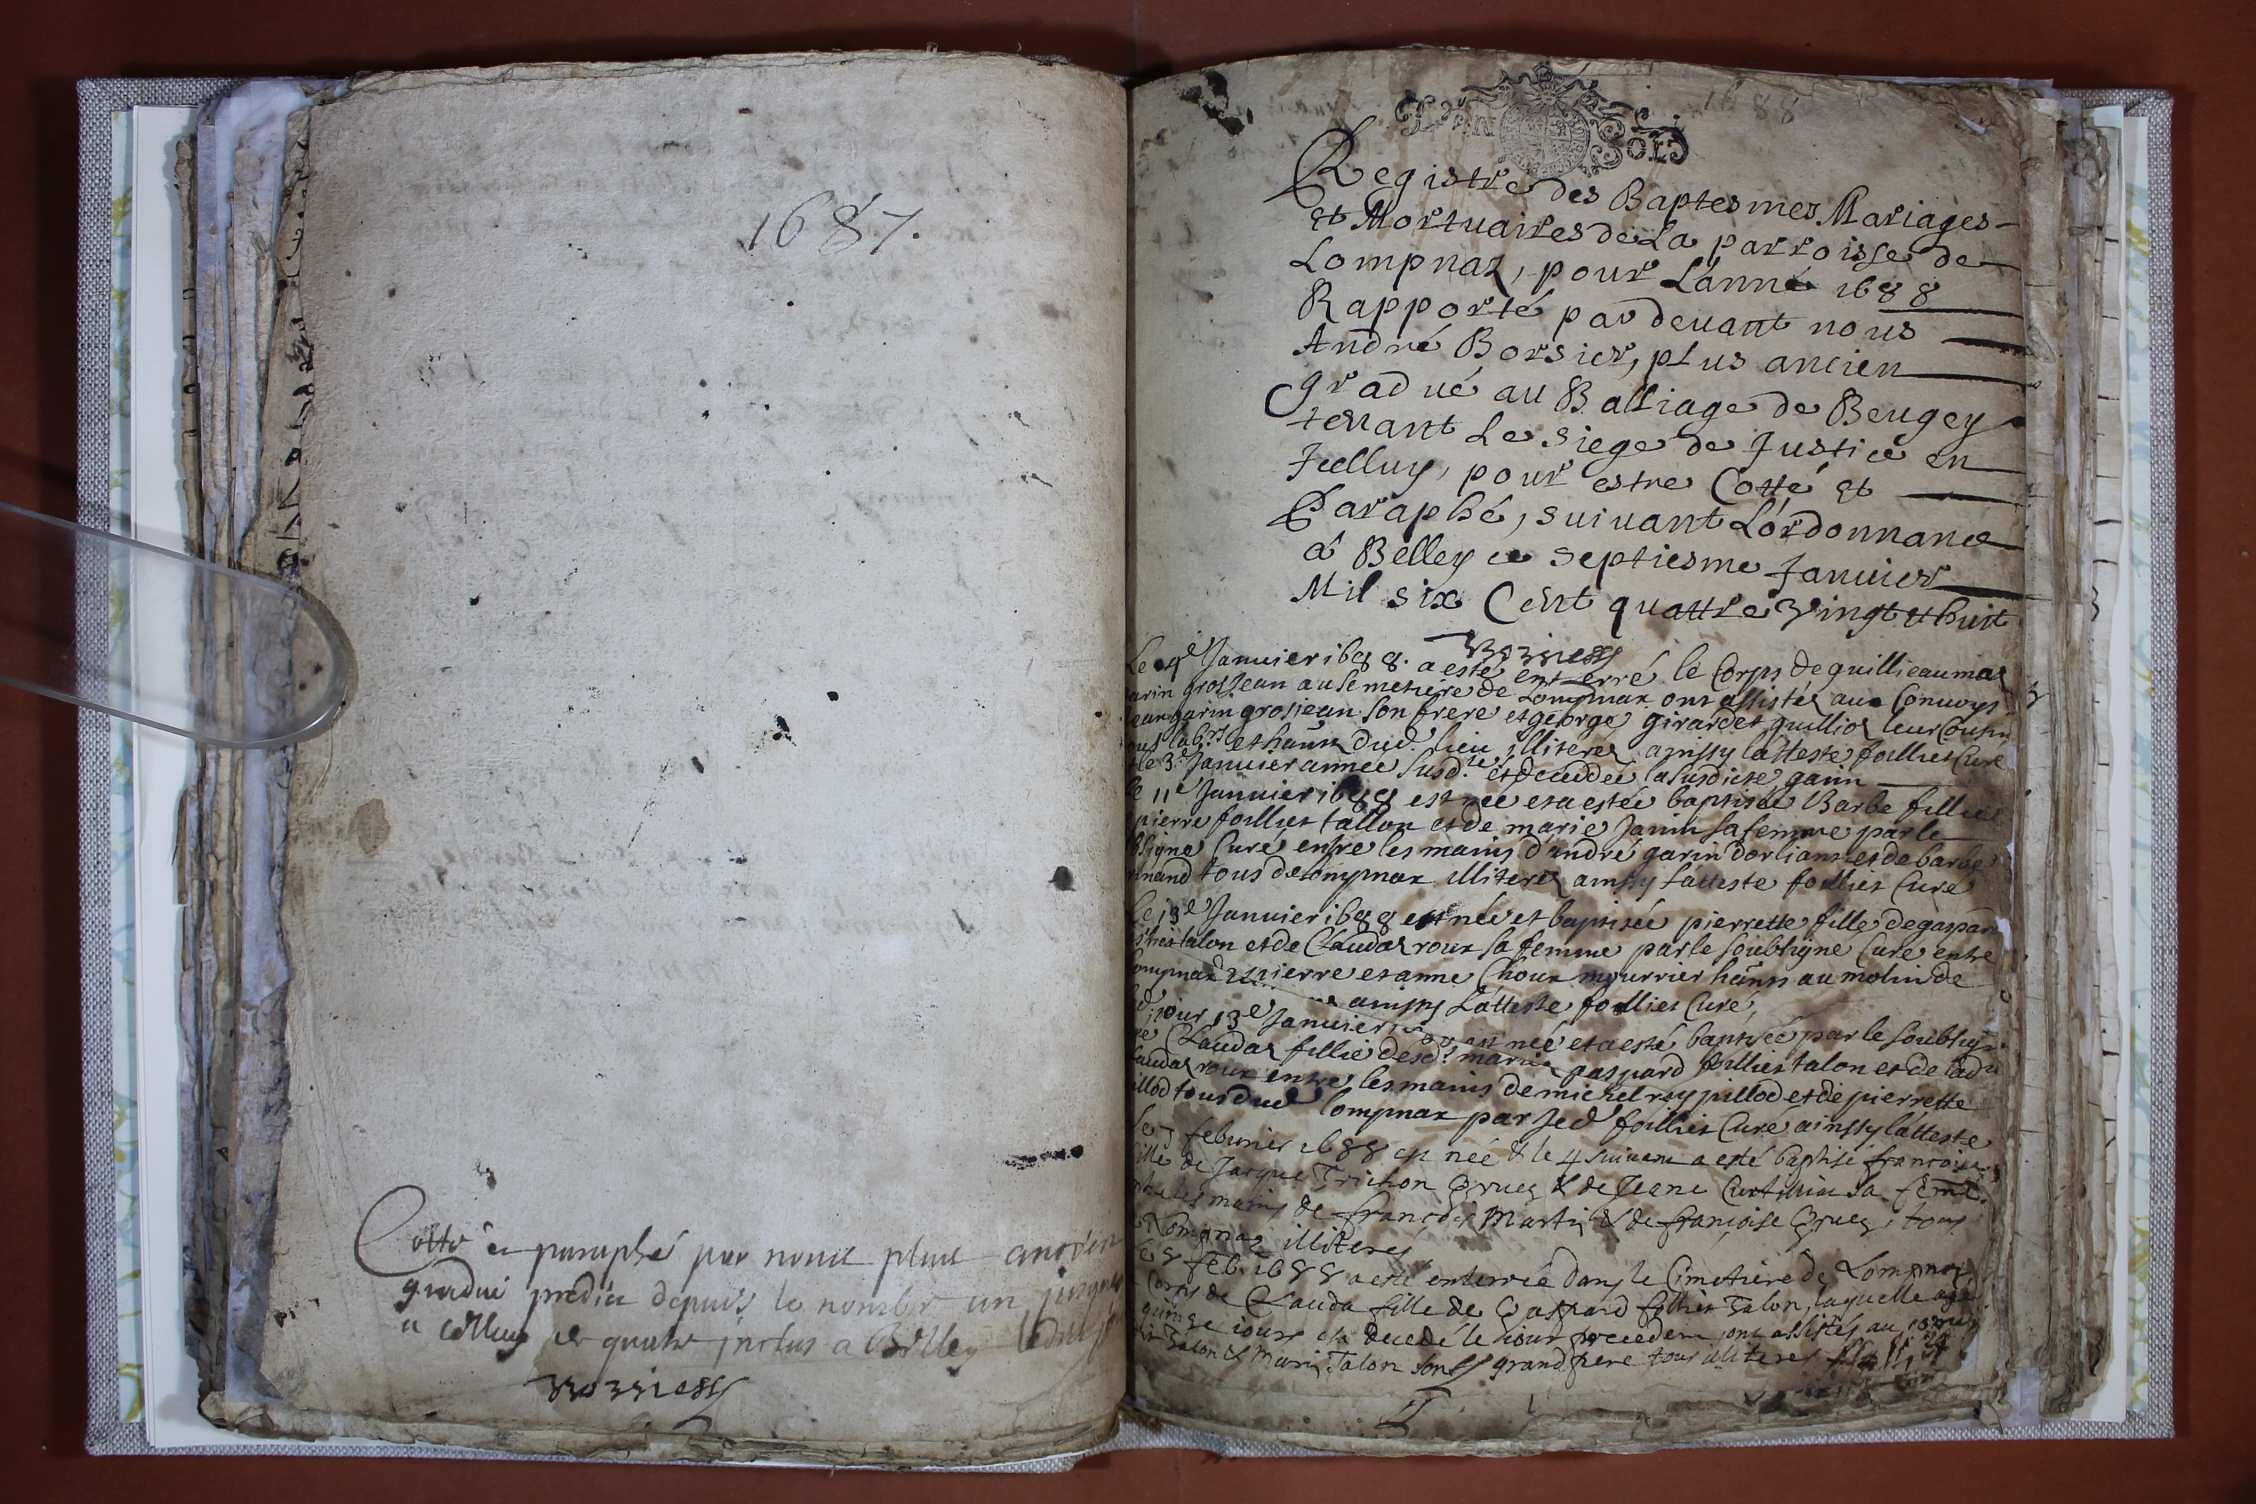 1687.
Cotté et paraphé par nous plus ancien
gradué predict depuis le nombre un jusques
a celluy de quatre inclus a Belley
Borsier
1688
Registre des Baptesmes Mariages
et Mortuaires de La parroisse de
Lompnaz, pour L'anné 1688
Rapporté par devant nous
André Borsier, plus ancien
gradué au Balliage de Beugey
tenant Le siege de Justice en
Jcelluy, pour estre Cotté et
Paraphé, suivant L'ordonnance
a Belley ce septiesme Januier
Mil six Cent quattre vingt et huit
Borsier
Le 4e Januier 1688. a esté enterré le Corps de guillieauma
garin grosjean au semetiere de Lompnaz ont assistés aux Conuoys
Jean garin grosjean son frere et george girardet guilliod leur Cousin
et hants dud. lieu illiteres ainssy l'atteste follliet Curé
le 3e Januier année susd.te est decedée la susdicte garin
le 11e Januier 1688 est née et a estée baptisée Barbe fillie
pierre folliet tallon et de marie Janin sa femme par le
soubsigné Curé entre les mains d'andré garin dorlian et de barbe
tous de lompnaz illiteres ainssy l'atteste folliet Curé
Le 13e Januier 1688 est née et baptisée pierrette fille de gaspard
folliet talon et de Claudaz roux sa femme par le soubsigné Curé entre
pierre et anne Choux mourrier hants au molin de
lompnaz ainssy L'atteste folliet Curé
led. jour 13e Januier est née et a esté baptisée par le soubsigné
Claudaz fillie desd.s mariés gaspard folliet talon et de lad.
Claudaz roux entre les mains de michel rey pillod et de pierrette
pillod tous dud. lompnaz par led. folliet Curé ainssy l'atteste
le 3 feburier 1688 est née & le 4 suivant a esté baptisé francoise
fille de Jacque Trichon Bruez & de Jeane Curtillia sa feme
les mains de francois Martin & de francoise Bruez, tous
de Lompnaz illiteres
le 8 feb. 1688 a esté enterrée dans le Cimetiere de Lompnaz
le Corps de Clauda fille de Gaspard folliet Talon, laquelle agée
quinze iours est decedé le iour precedent ont assistés au conuoy
Talon & Talon son grand pere tous illiteres